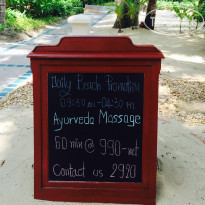 Daily Beach Promotion
09:30 am - 04:30 pm
Ayurveda Massage
60 min @ 990-net
Contact us 2920